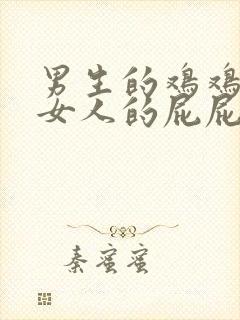 男生的鸡鸡
女人的屁屁
秦蜜蜜